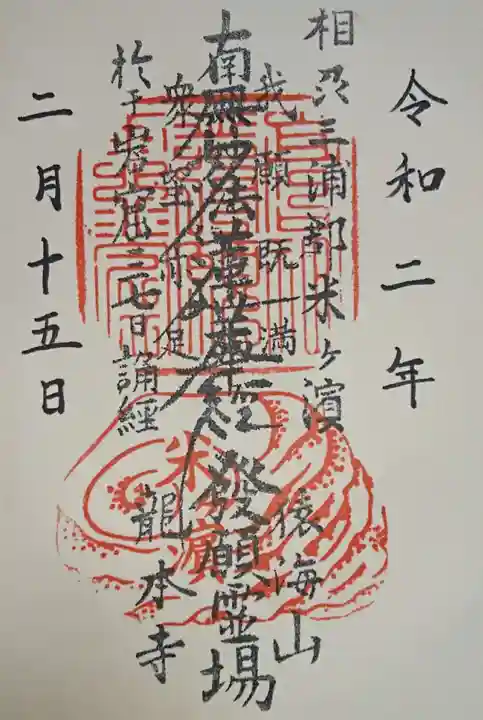 令和二年
相州三浦郡米ヶ濱
猿海山
我願既一満
南無妙法蓮華経 發願霊場
衆望亦足
龍本寺
於于岩窟三七日誦経
二月十五日
米
濱